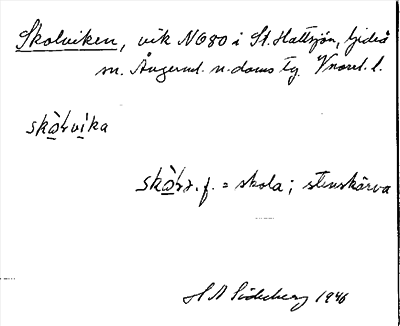 Skolviken, vik NO80 i St. Hattsjön, Gideå
sn. Ångerml. n. doms tg. Vnorrl. l.
skò̱ɫvi̱ka
skò̱ɫɜ. f. = skola; stenskärva
H A Söderberg 1946